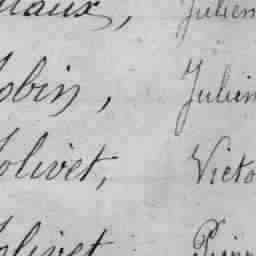 iaux, Julien
obin, Julien
olivet, Victo
olivet Pierr